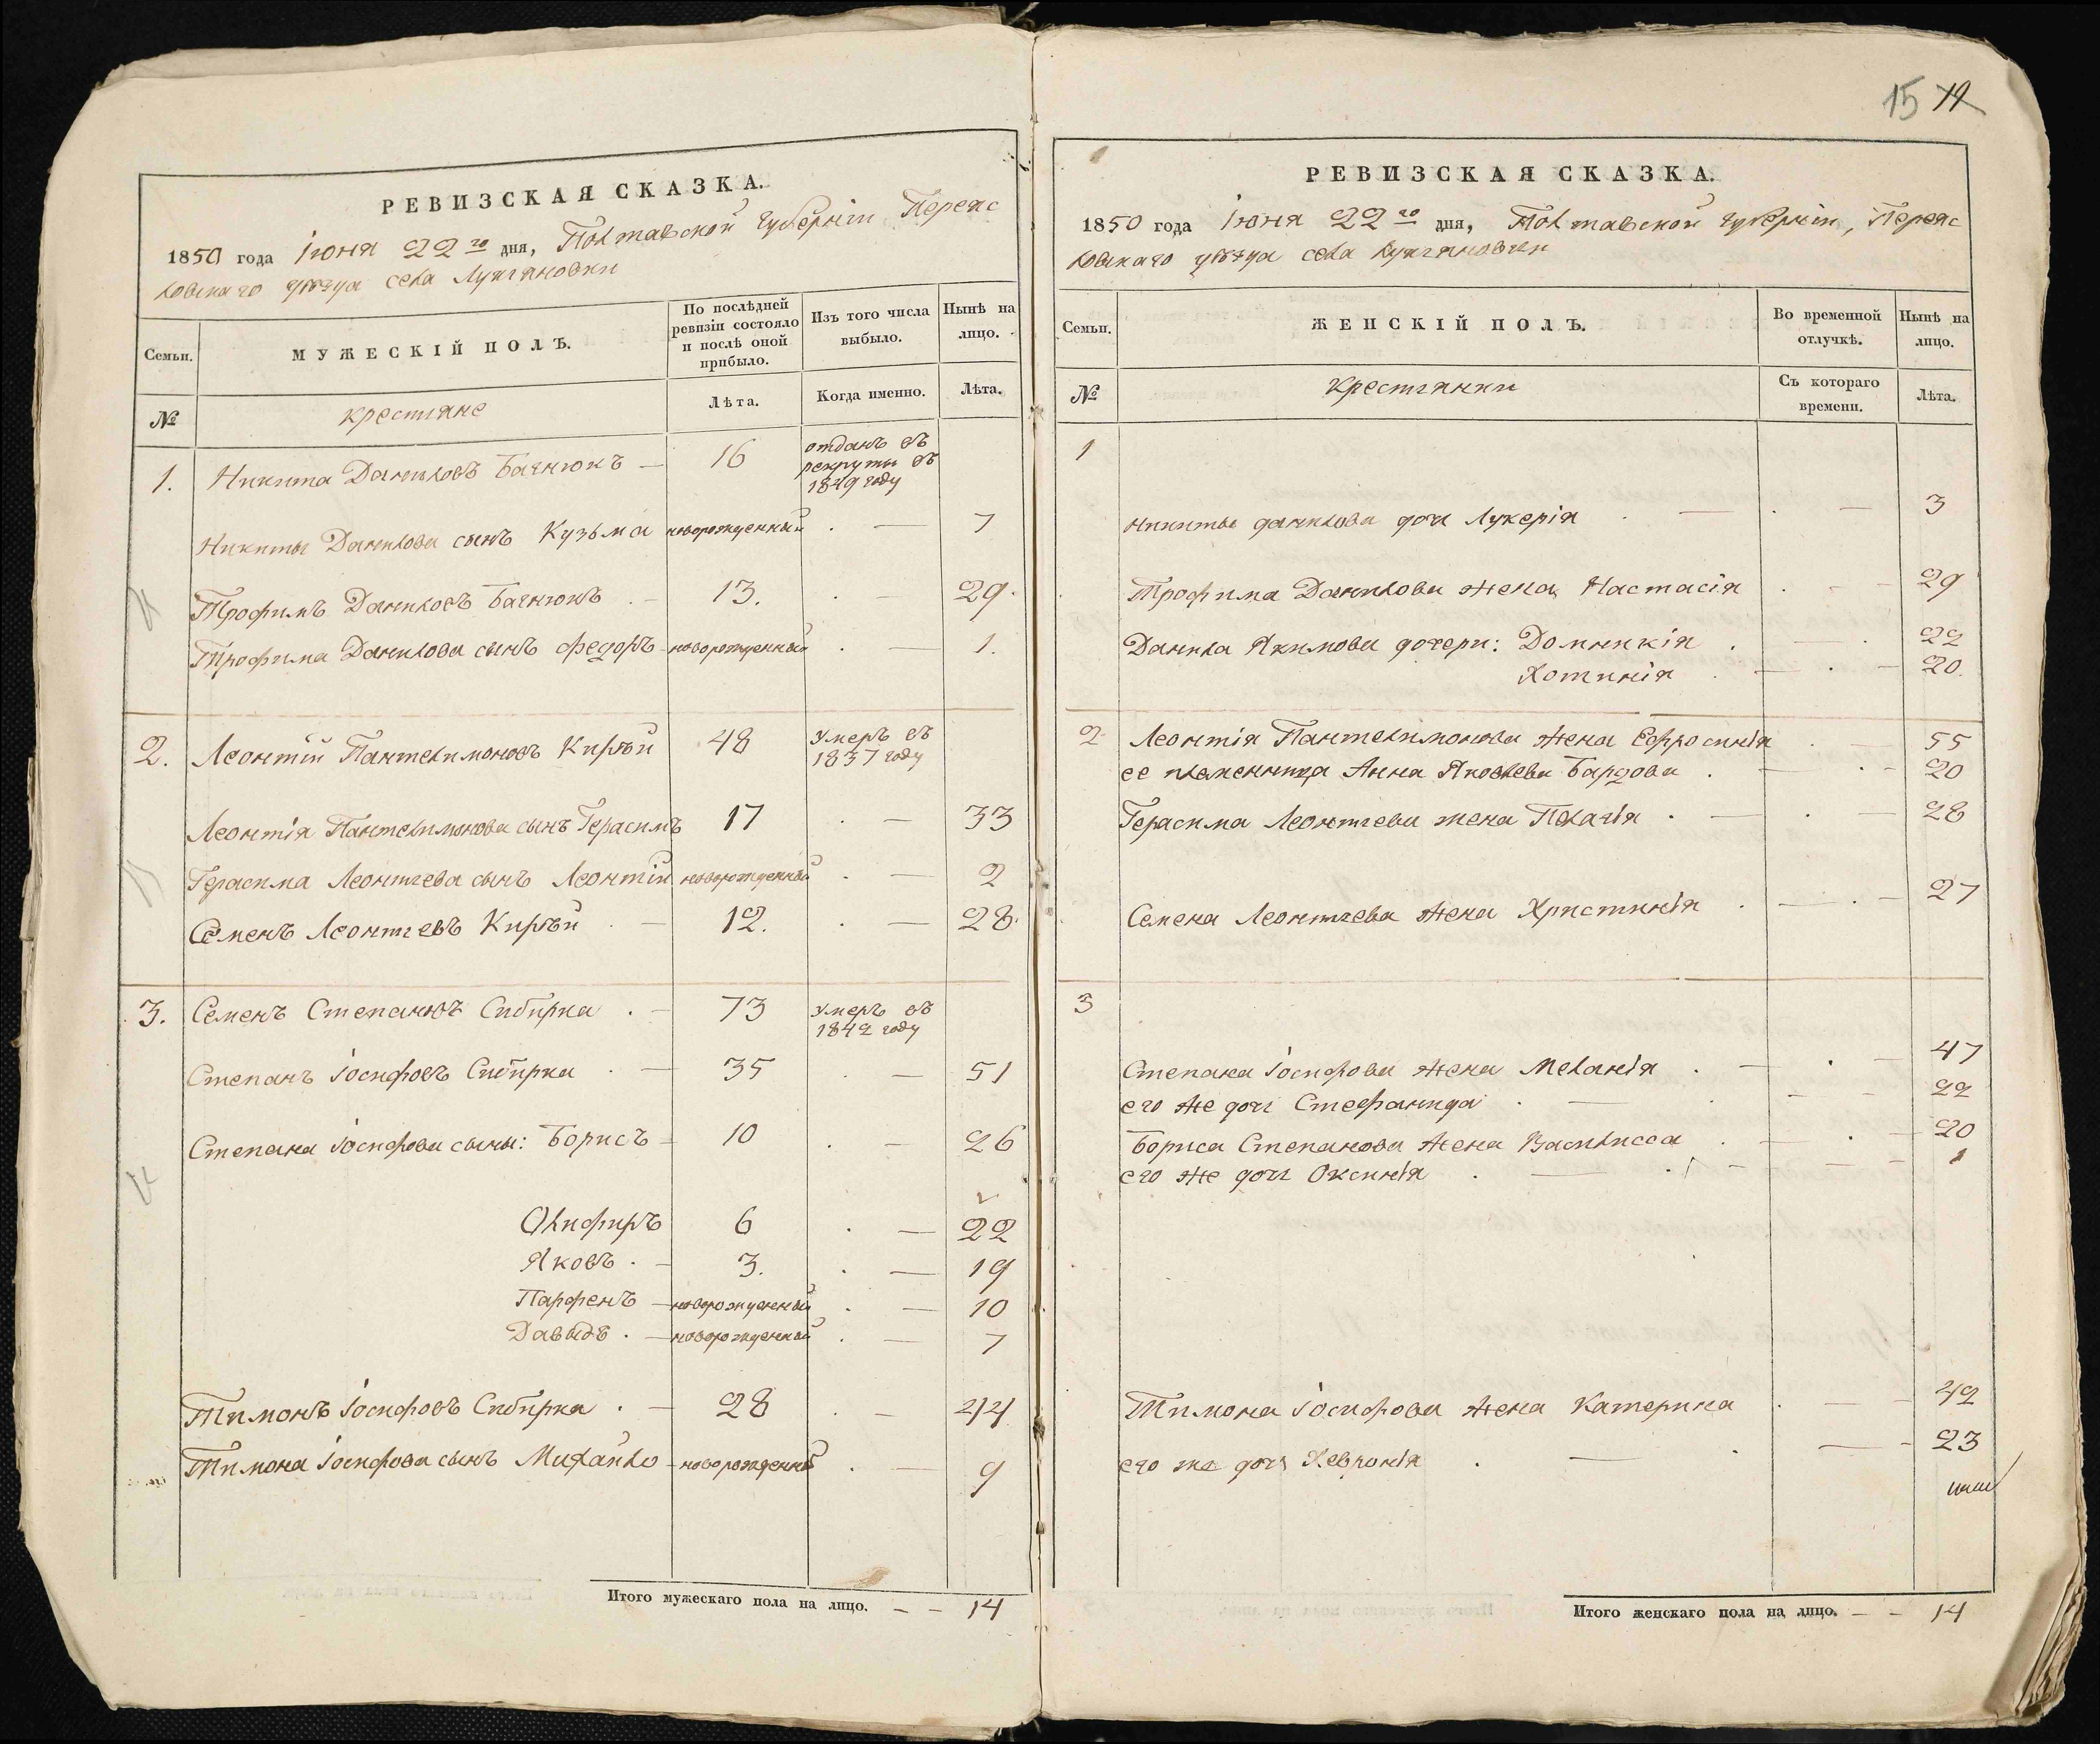 РЕВИЗСКАЯ СКАЗКА.
1850 года Іюня 22го дня, Полтавской Губерніи Переяс
ловскаго уѣзда села Лукьяновки
Семьи.
МУЖЕСКІЙ ПОЛЪ.
По послѣдней ревизіи состояло и послѣ оной прибыло.
Изъ того числа выбыло.
Нынѣ на лицо.
№
крестьяне
Лѣта.
Когда именно.
Лѣта.
1. Никита Даниловъ Багнюкъ — 16 отданъ въ
рекруты въ
1849 году
Никиты Данилова сынъ Кузьма новорожденный . — 7
Трофимъ Даниловъ Багнюкъ . — 13. . — 29.
Трофима Данилова сынъ Федоръ - новорожденный . — 1.
2. Леонтій Пантелимоновъ Кирѣй 48 умеръ въ
1837 году
Леонтія Пантелимонова сынъ Герасимъ 17 . — 33
Герасима Леонтьева сынъ Леонтій новорожденный . — 2
Семенъ Леонтьевъ Кирѣй . — 12. . — 28.
3. Семенъ Степановъ Сибирка . — 73 умеръ въ
1842 году
Степанъ Іосифовъ Сибирка . — 35 . — 51
Степана Іосифова сыны: Борисъ — 10 . — 26
Олифиръ 6 . — 22
Яковъ . — 3. . — 19
Парфенъ — новорожденный . — 10
Давыдъ . — новорожденный . — 7
Тимонъ Іосифовъ Сибирка . — 28 . — 44
Тимона Іосифова сынъ Михайло - новорожденный . — 9
Итого мужескаго пола на лицо. — — 14
15 12
РЕВИЗСКАЯ СКАЗКА.
1850 года Іюня 22го дня, Полтавской Губерніи, Переяс
ловскаго уѣзда села Лукьяновки
Семьи.
ЖЕНСКІЙ ПОЛЪ.
Во временной отлучкѣ.
Нынѣ на лицо.
№
Крестьянки
Съ котораго времени.
Лѣта.
1
Никиты Данилова дочь Лукерія . — . — 3
Трофима Данилова жена Настасія . — — 29
Данила Якимова дочери: Домникія . — . 22
Хотинія . — . — 20.
2 Леонтія Пантелимонова жена Ефросинія . — 55
ее племенница Анна Яковлева Бардова . — . — 20
Герасима Леонтьева жена Пелагія . — . — 28
Семена Леонтьева жена Христинія . — . — 27
3
Степана Іосифова жена Меланія . — . — 47
его же дочь Стефанида . — . — — 22
Бориса Степанова жена Василисса . — . — 20
его же дочь Оксинія . — . — — — 1
Тимона Іосифова жена Катерина . — — 42
его же дочь Хевронія . — . — — 23
Итого женскаго пола на лицо. — — 14